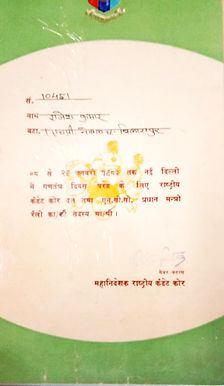 सं. 10451
नाम राजेश कुमार
बटा.
०८ से २८ जनवरी तक नई दिल्ली
में गणतंत्र दिवस परेड के लिए राष्ट्रीय
कैडेट कोर दल तथा एन.सी.सी. प्रधान मन्त्री
रैली का/की सदस्य था/थी।
मेजर जनरल
महानिदेशक राष्ट्रीय कैडेट कोर